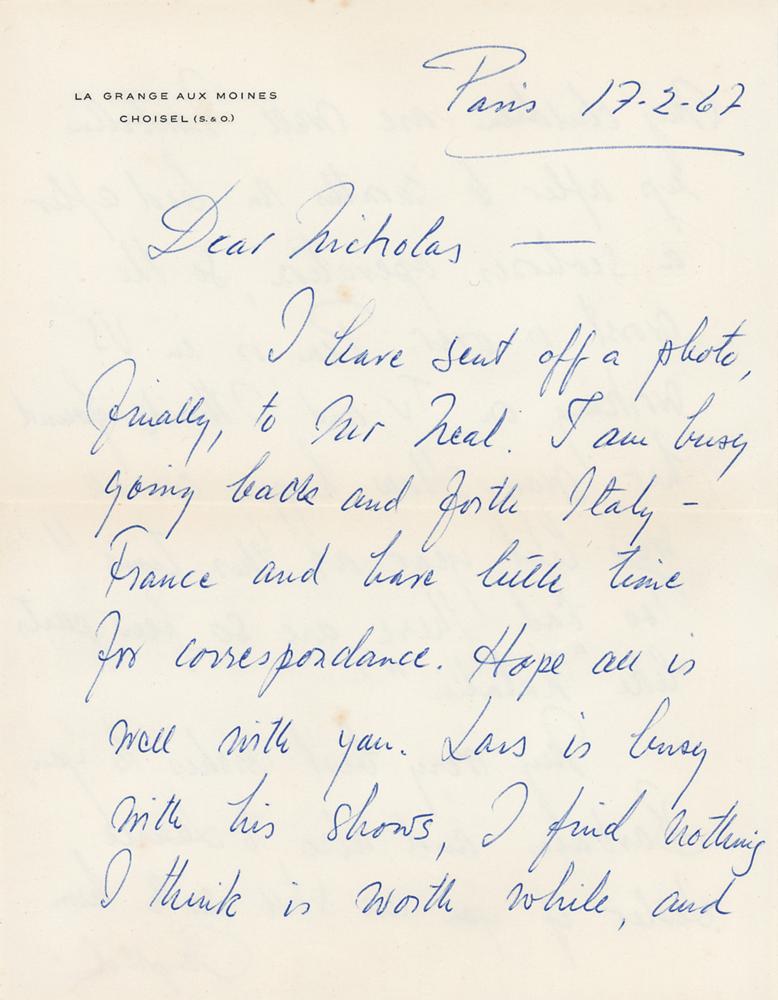 LA GRANGE AUX MOINES
CHOISEL (S. & O.)
Paris 17-2-67
Dear Nicholas —
I have sent off a photo,
finally, to Mr Neal. I am busy
going back and forth Italy -
France and have little time
for correspondance. Hope all is
well with you. Lars is busy
with his shows, I find nothing
I think is worth while, and